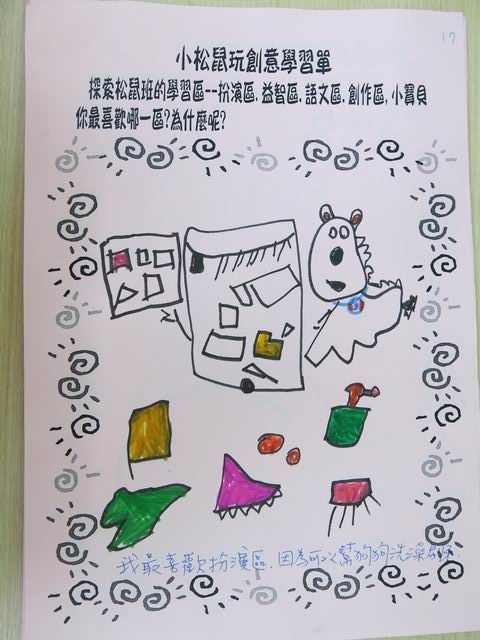 17
小松鼠玩創意學習單
探索松鼠班的學習區--扮演區.益智區.語文區.創作區,小寶貝
你最喜歡哪一區?為什麼呢?
我最喜歡扮演區.因為可以幫狗狗洗澡